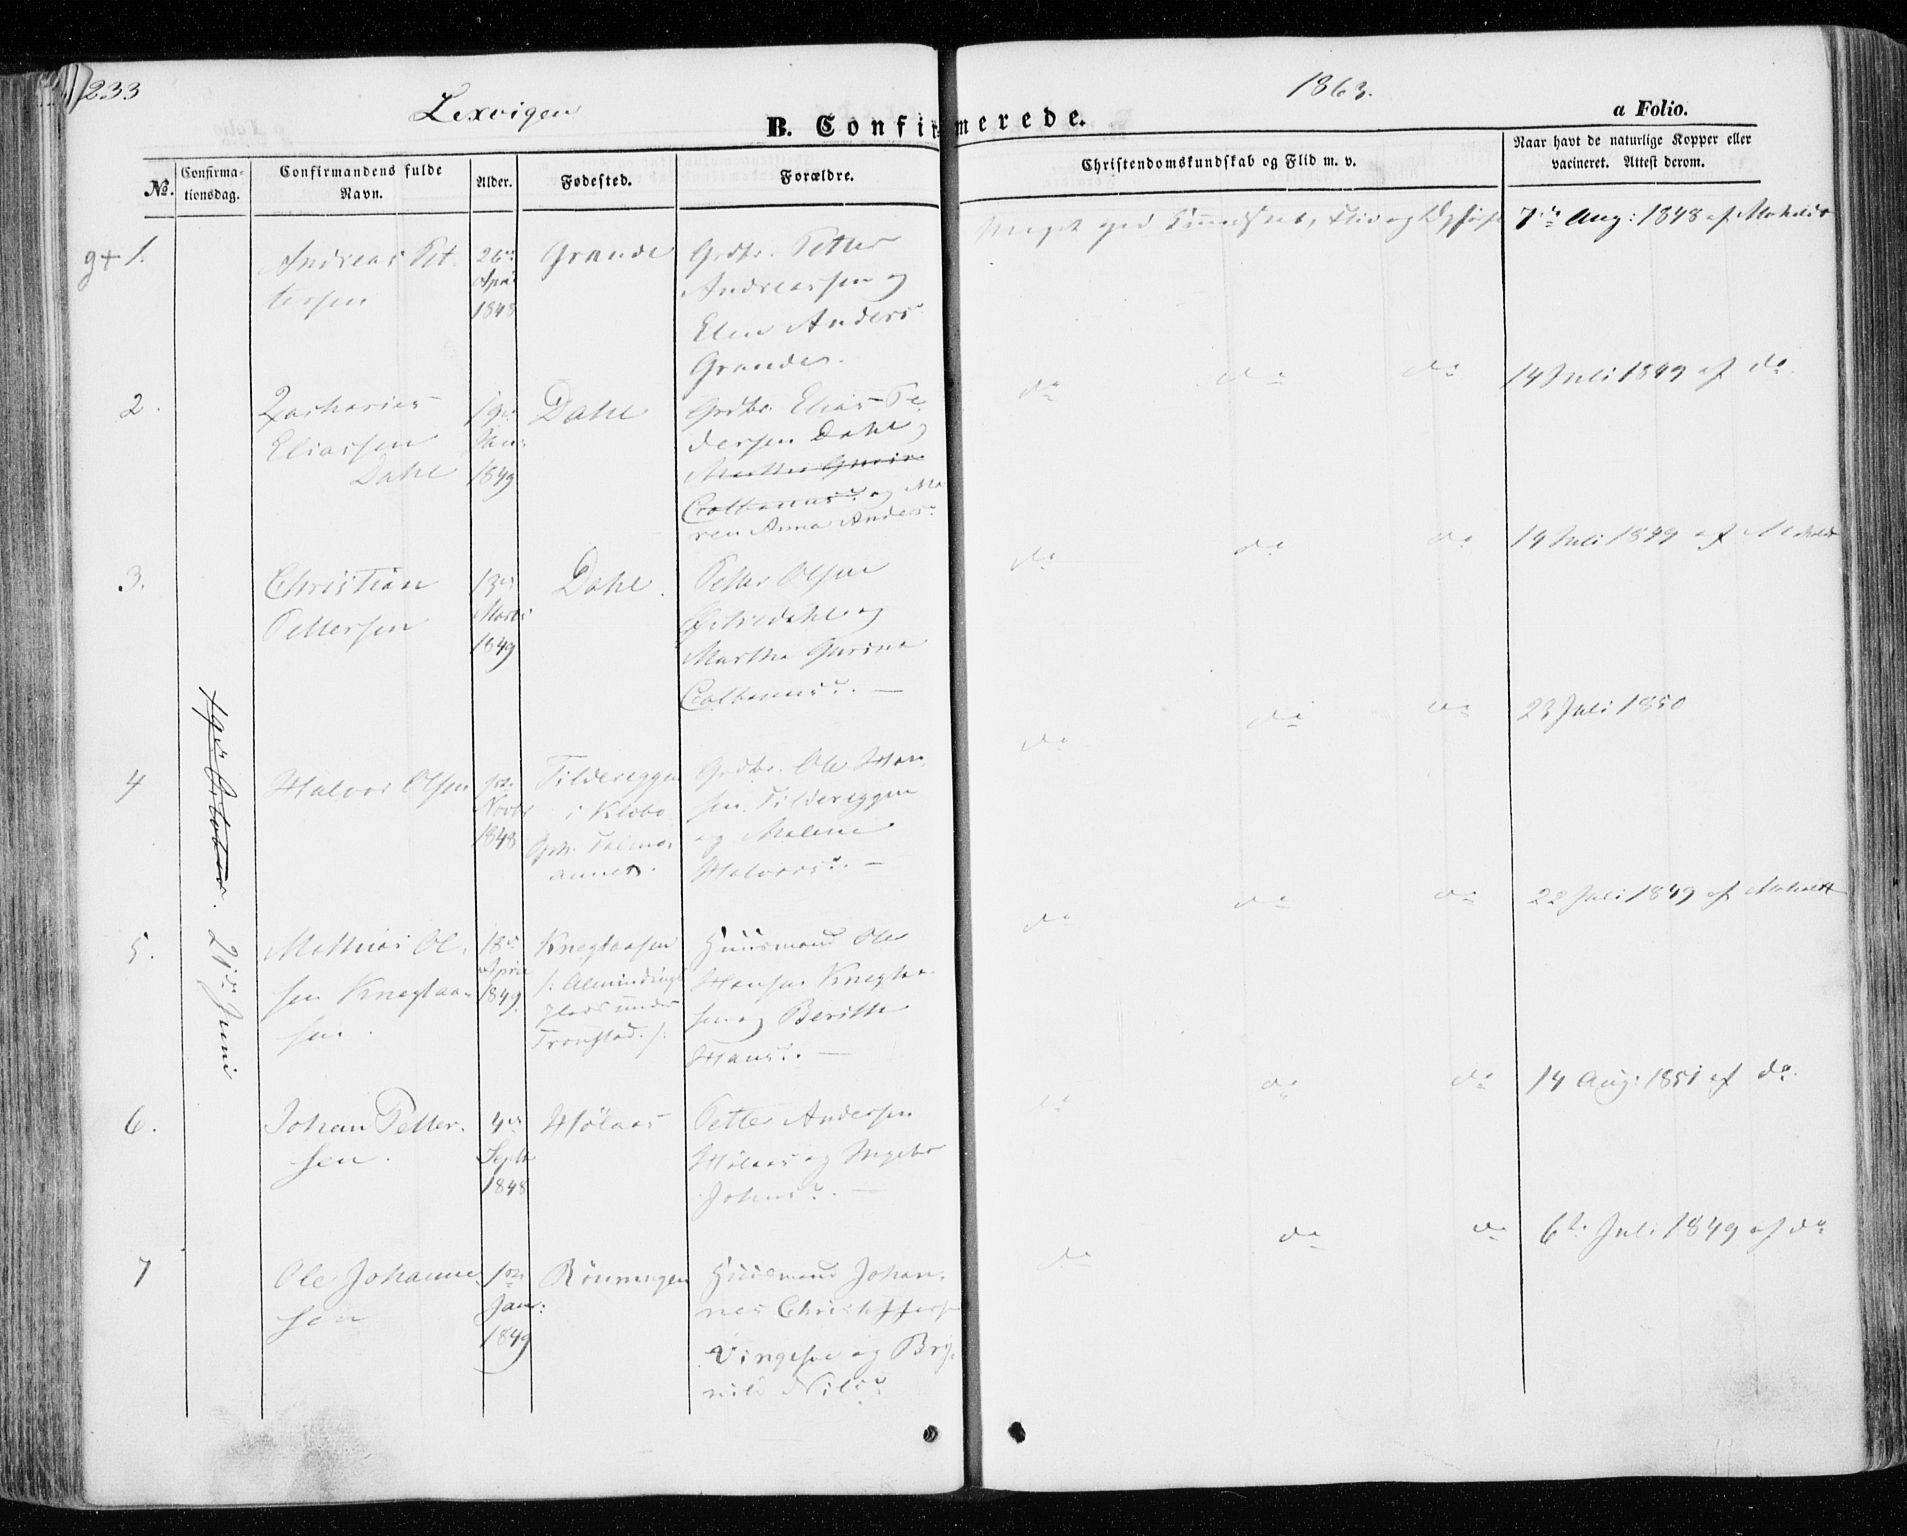 233
Lexvigen
1863.
B. Confirmerede.
a Folio.
No.
Confirma-
tionsdag.
Confirmandens fulde
Navn.
Alder.
Fødested.
Forældre.
Christendomskundskab og Flid m. v.
Naar havt de naturlige Kopper eller
vacineret. Attest derom.
1.
Andreas Pet-
tersen
26de
April
1848
Grande
Grdbr. Petter
Andreassen og
Elen Anders
Grande.
Meget god Kundskab, Flid og
7de Aug: 1848 af
2.
Zacharias
Eliassen
Dahl
19de
Jan:
1849
Dahl
Grdbr. Elias Pe-
dersen Dahl og
og Ma-
ren Anna Andersd.
do do do
14 Juli 1849 af do.
3.
Christian
Pettersen
13de
Marts
1849
Dahl.
Petter Olsen
Østredahl og
Martha Gurina
do do do
14 Juli 1849 af
19de October. 21de Juni
4
Halvor Olsen
Novbr
1848
Tildereggen
i Klæbo
Ole Han-
sen Tildereggen
og Malena
Halvorsd. —
do do do
23 Juli 1850
5.
Mathias Ol-
sen Knegtaa-
sen.
18de
April
1849
Knegtaasen
/: Alminding-
plads under
Tronstad. :/
Huusmand Ole
Hansen Knegtaa-
sen og Berithe
Hansd. —
do do do
22 Juli 1849 af
6.
Johan Petter-
sen.
4de
Septb
1848
Hølaas
Petter Andersen
Hølaas og Ingebor
Johnsd. —
do do do
14 Aug: 1851 af do.
7
Ole Johanne-
sen
1ste
Jan:
1849
Rönningen
Huusmand Johan-
nes Christoffersen
og Bry-
nild Nilsd
do do do
6te Juli 1849 af do